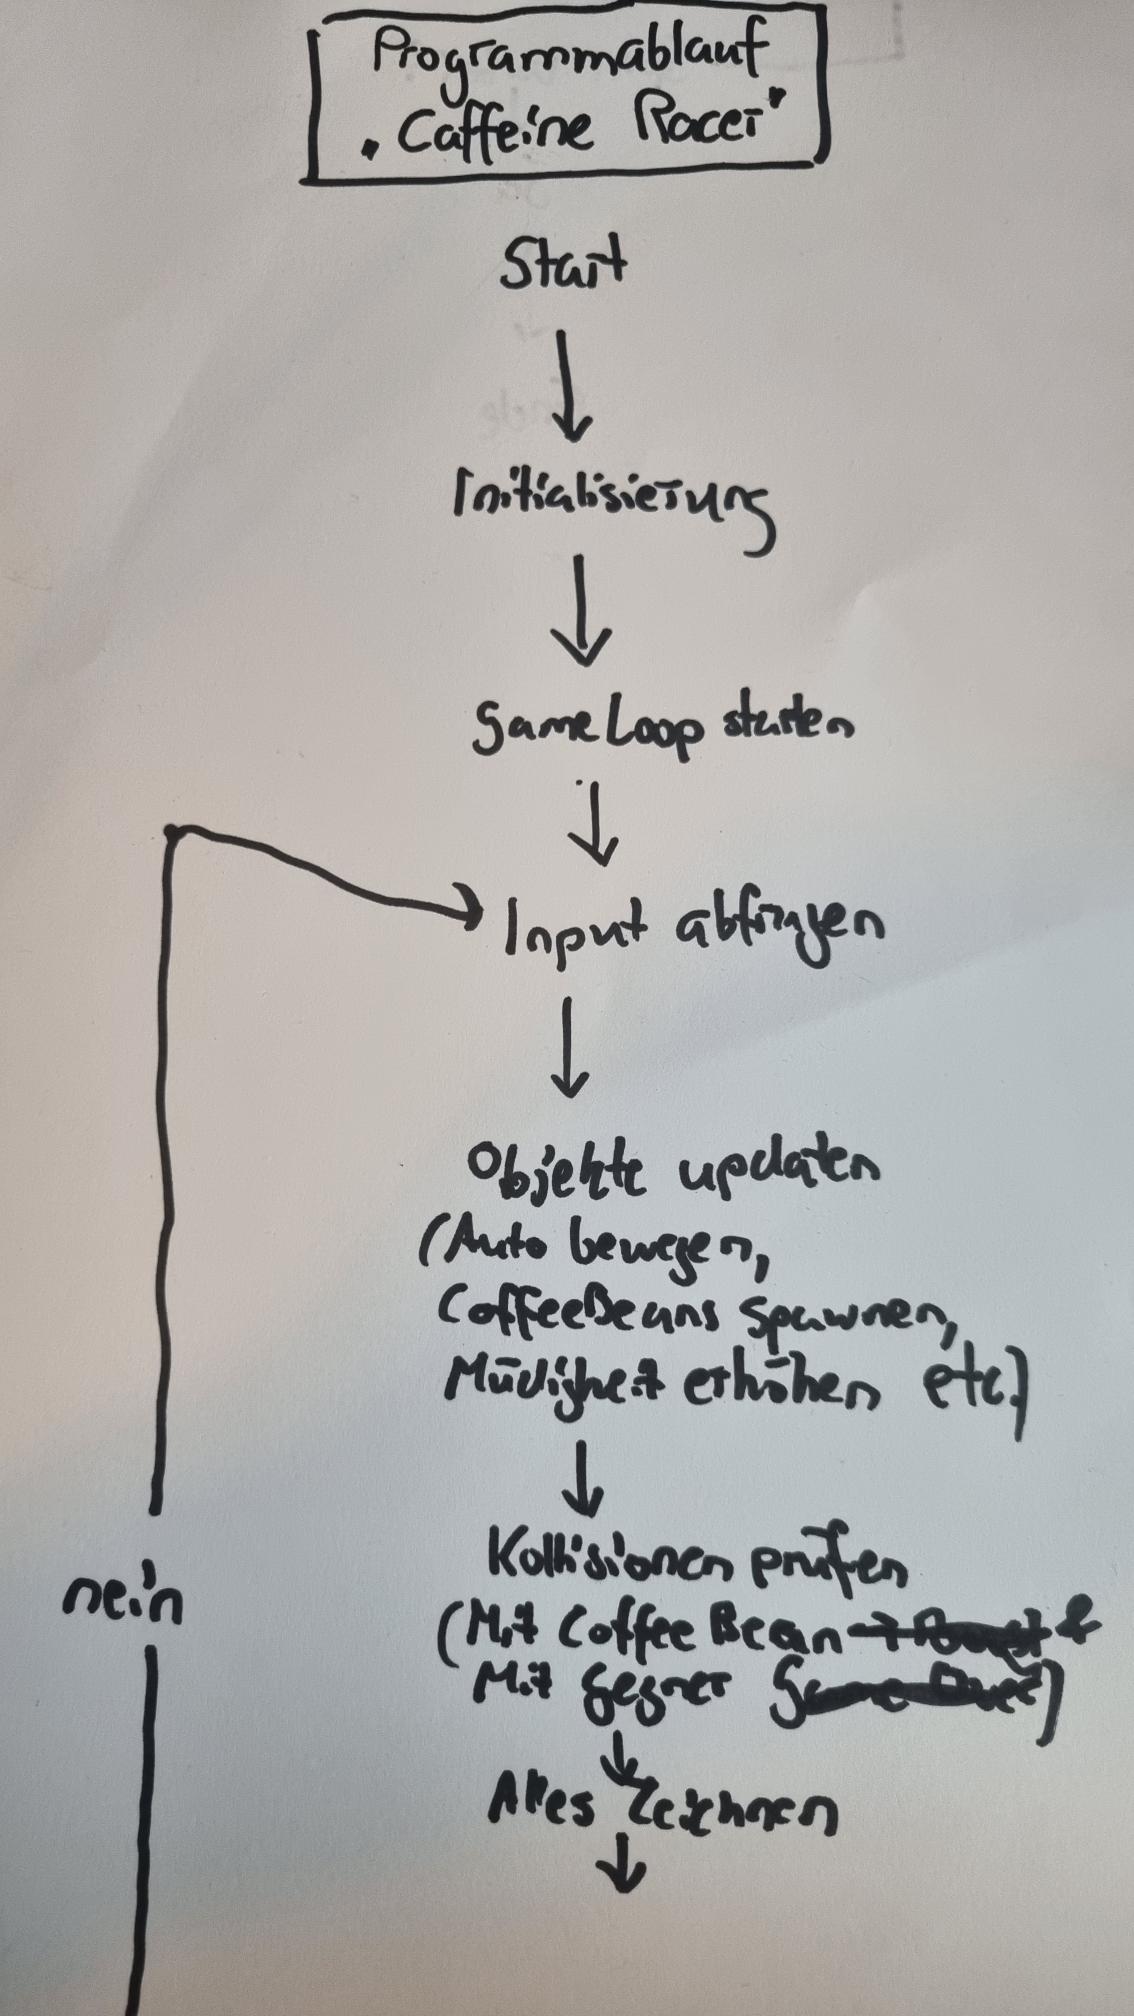 Programmablauf
„Caffeine Racer"
Start
Initialisierung
GameLoop starten
Input abfragen
Objekte updaten
(Auto bewegen,
CoffeeBeans spawnen,
Müdigkeit erhöhen etc.)
Kollisionen prüfen
(Mit Coffee Bean &
Mit Gegner )
Alles Zeichnen
nein